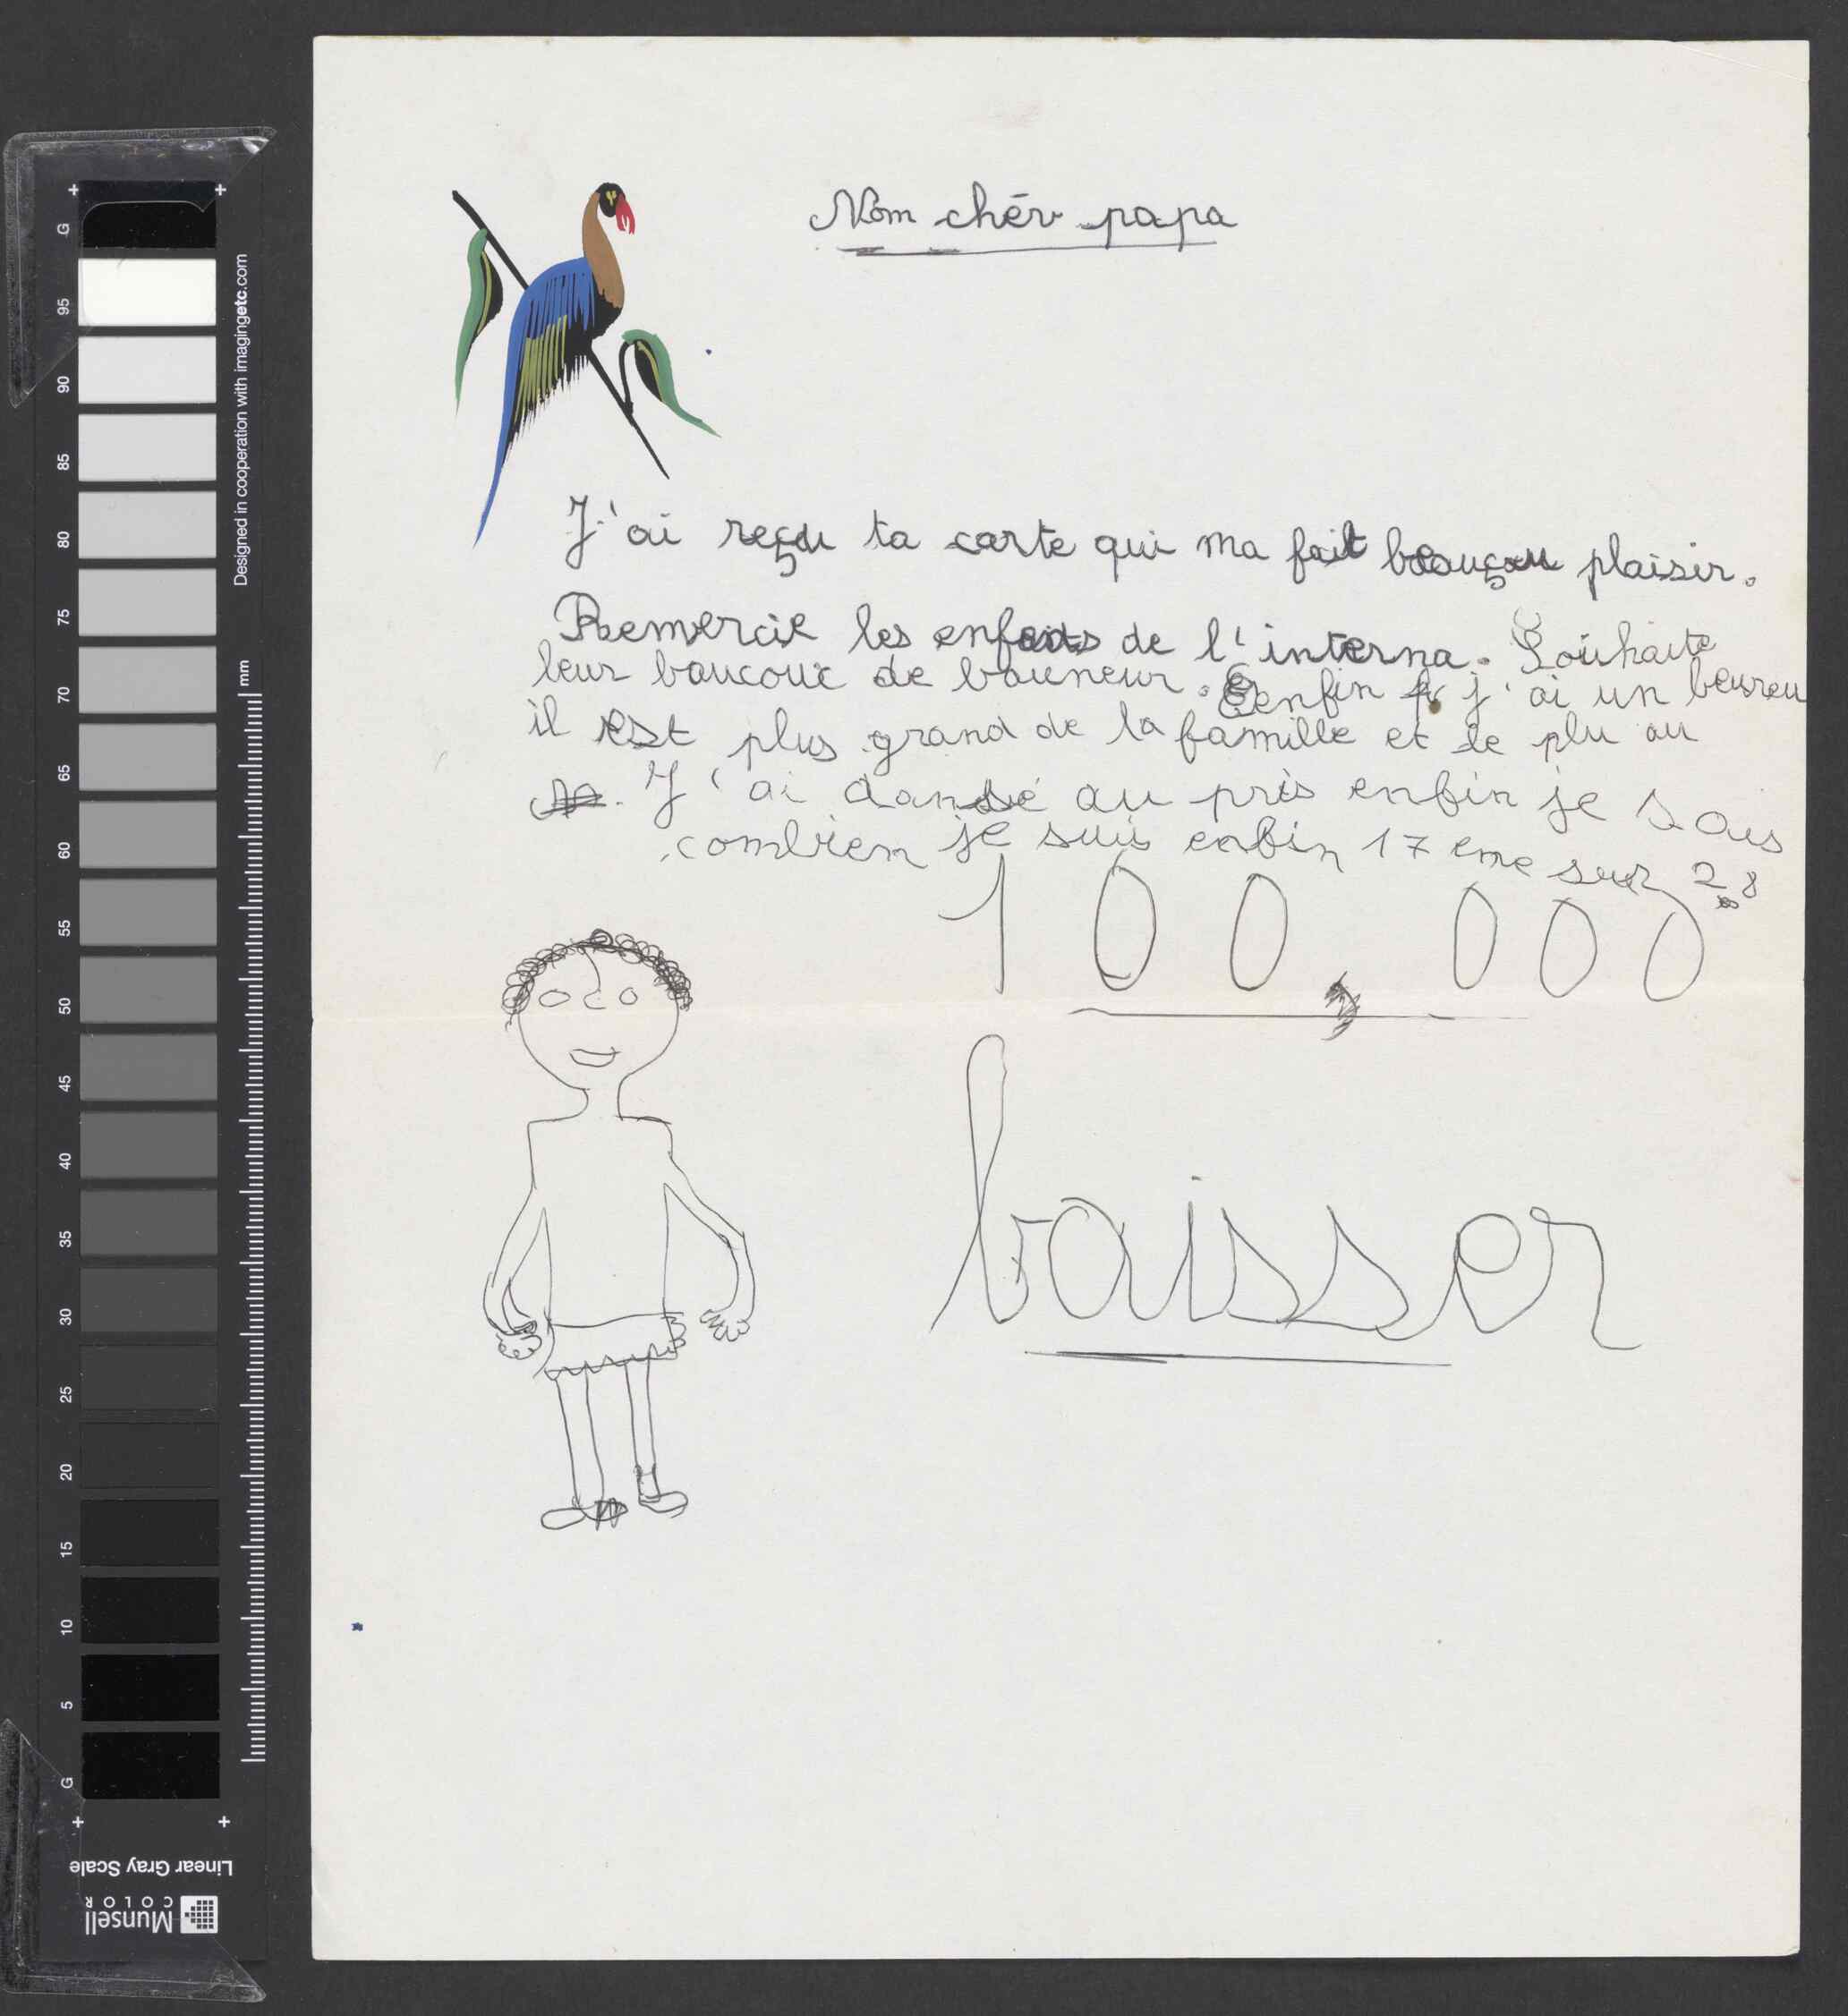 Nom chér papa
J'ai reçu ta carte qui ma fait beauçou plaisir.
Remercie les enfants de l'interna. Souhaite
leur baucoux de bauneur. enfin j'ai un beureu
il est plus grand de la famille et le plu au
J'ai dansé au pris enfin je sais
combien je suis enfin 17 eme sur 28
100,000
baisser
Designed in cooperation with imagingetc.com
mm
G
95
90
85
80
75
70
65
60
55
50
45
40
35
30
25
20
15
10
5
G
Linear Gray Scale
Munsell
COLOR